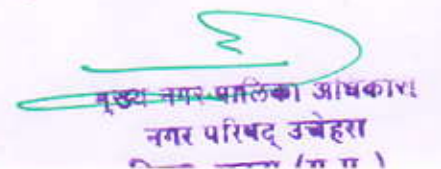 मुख्य नगर पालिका अधिकारी
नगर परिषद् उचेहरा